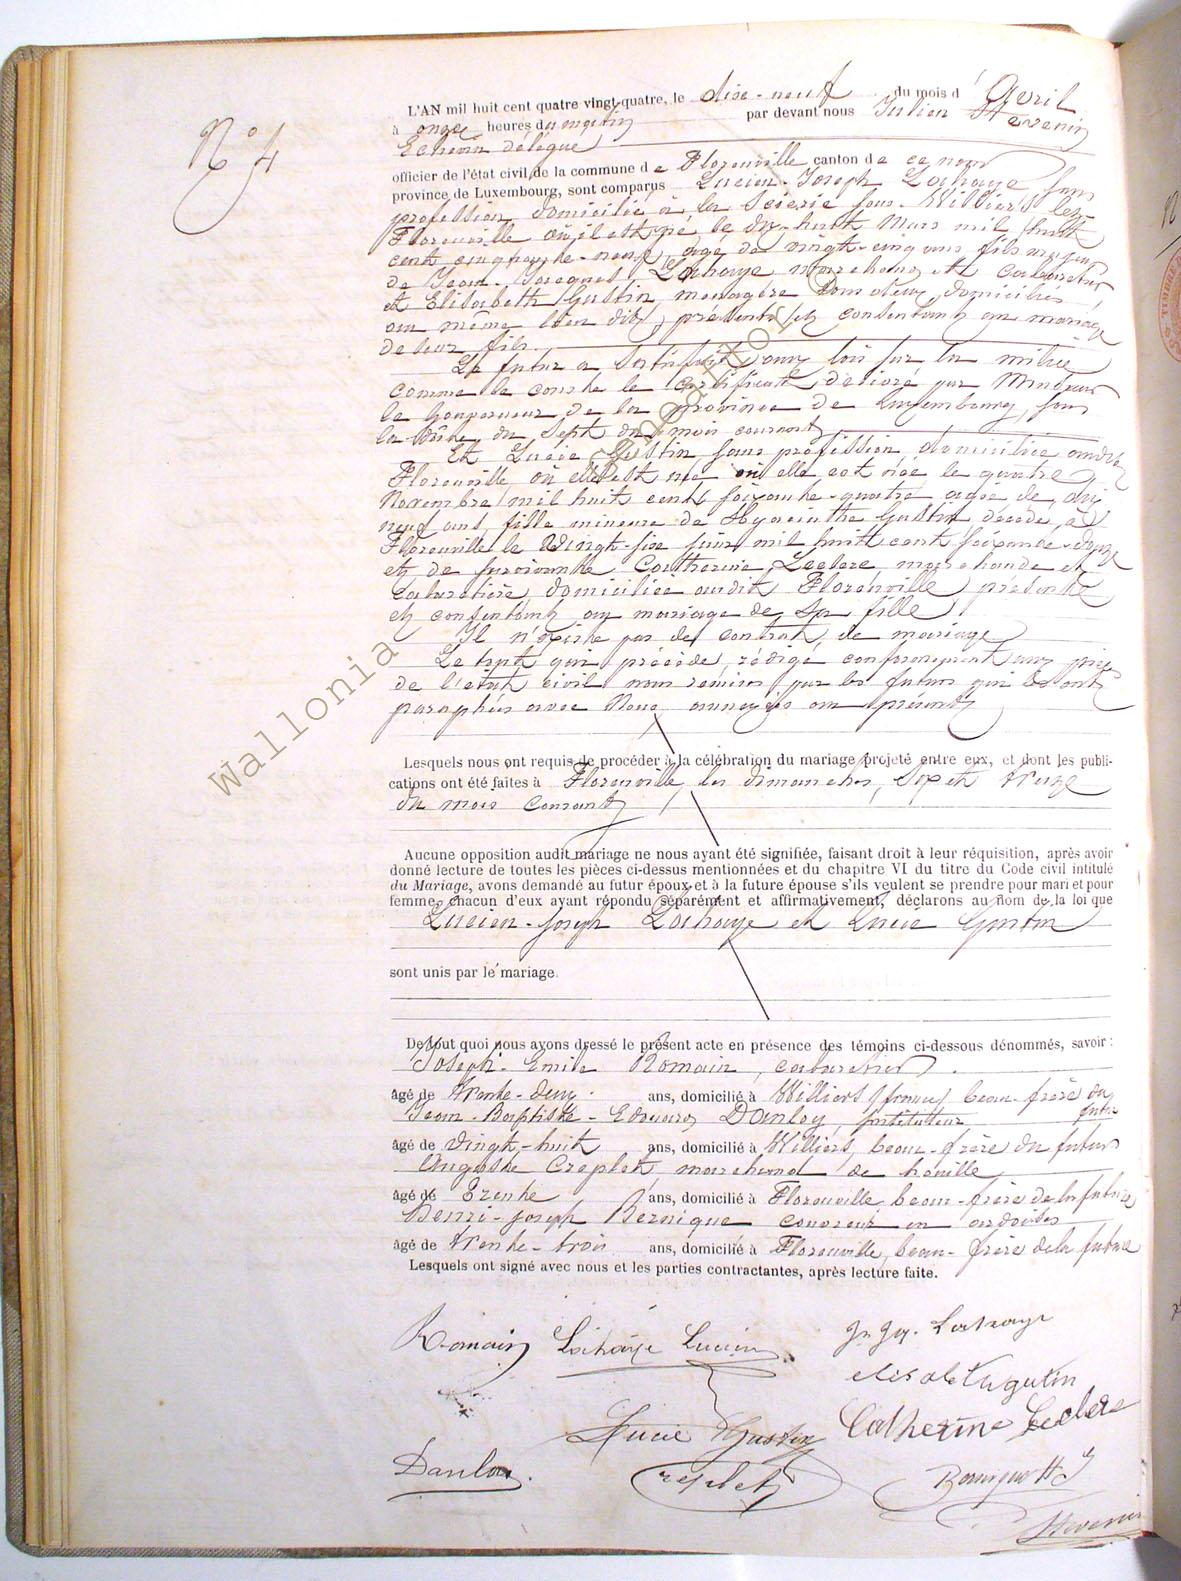 N° 4
L'AN mil huit cent quatre vingt-quatre, le dixe-neuf du mois d'Avril
à onze heures du matin par devant nous Julien Stevenin
Echevin délégué
officier de l'état civil de la commune de Florenville canton de ce nom
province de Luxembourg, sont comparus Lucien-Joseph Lahaye sans
profession domicilié à la Scierie sous-Williers lez-
Florenville où il est né le dix-huit Mars mil huit
cent cinquante-neuf, âgé de vingt-cinq ans fils majeur
de Jean-Jacques Lahaye marchand et cabaretier
et Elisabeth Gustin, menagère domiciliés
au même lieu dit, présents et consentant au mariage
de leur fils.
Le futur a satisfait aux lois sur la milice
comme le constate le certificat délivré par Monsieur
le Gouverneur de la province de Luxembourg, sous
la date du sept du mois courant
Et Lucie Gustin sans profession domiciliée audit
Florenville où elle est née où elle est née le quatre
Novembre mil huit cent soixante-quatre agée de dix
neuf ans, fille mineure de Hyacinthe Gustin décédé, à
Florenville le vingt-six juin mil huit cent soixante-douze
et de survivante Catherine Leclere, marchande et
cabaretière domiciliée audit Florenville présente
et consentant au mariage de sa fille
Il n'existe pas de contrat de mariage
Le tout qui précède, rédigé conformément aux
de l'état civil nous remises par les futurs qui les ont
paraphées avec Nous, annexées au présent
Lesquels nous ont requis de procéder à la célébration du mariage projeté entre eux, et dont les publi-
cations ont été faites à Florenville les dimanches, six et treize
du mois courant
Aucune opposition audit mariage ne nous ayant été signifiée, faisant droit à leur réquisition, après avoir
donné lecture de toutes les pièces ci-dessus mentionnées et du chapitre VI du titre du Code civil intitulé
du Mariage, avons demandé au futur époux et à la future épouse s'ils veulent se prendre pour mari et pour
femme, chacun d'eux ayant répondu séparément et affirmativement, déclarons au nom de la loi que
Lucien-Joseph Lahaye et Lucie Gustin
sont unis par le mariage.
De tout quoi nous avons dressé le présent acte en présence des témoins ci-dessous dénommés, savoir :
Joseph-Emile Romain, cabaretier
âgé de trente-deux ans, domicilié à Williers (france) beau-frère du
futur
Jean-Baptiste-Edouard Danloy, instituteur
âgé de vingt-huit ans, domicilié à Williers, beau-frère du futur
Auguste Creplet, marchand de houille
âgé de Trente ans, domicilié à Florenville beau-frère de la future
Henri-Joseph Bernique couvreur en ardoises
âgé de trente-trois ans, domicilié à Florenville, beau-frère de la future
Lesquels ont signé avec nous et les parties contractantes, après lecture faite.
Romain Lahaye Lucien Jn Jq. Lahaye
elisabet gustin
Lucie Gustin Catherine Leclere
Danloy. Creplet Bernique H J
Stevenin
Wallonia